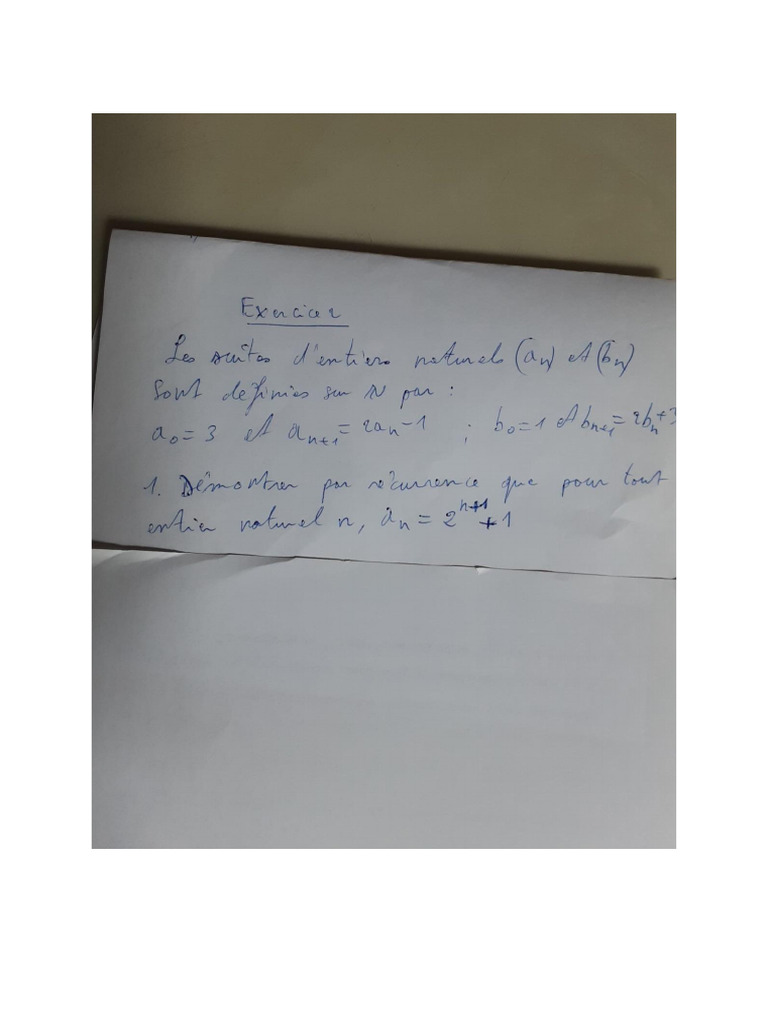 Exercice 2
Les suites d'entiers naturels (aₙ) et (bₙ)
sont définies sur N par :
a₀ = 3 et aₙ₊₁ = 2aₙ - 1 ; b₀ = 1 et bₙ₊₁ = 2bₙ + 3
1. Démontrer par récurrence que pour tout
entier naturel n, aₙ = 2ⁿ⁺¹ + 1